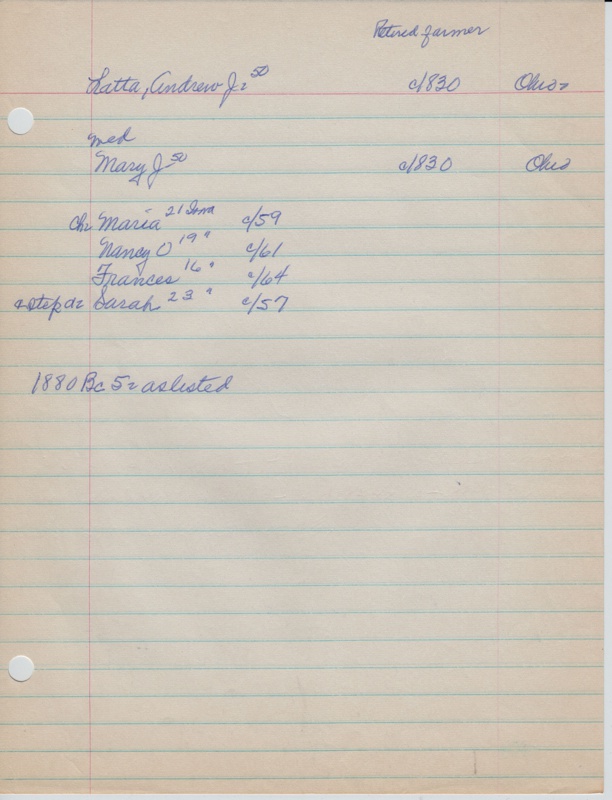 Retired farmer
Latta, Andrew J. 50 c/1830 Ohio
med
Mary J 50 c/1830 Ohio
chr Maria 21 Iowa c/59
Nancy O 19 " c/61
Frances 16 " c/64
& step dr Sarah 23 " c/57
1880 Bc 52 as listed